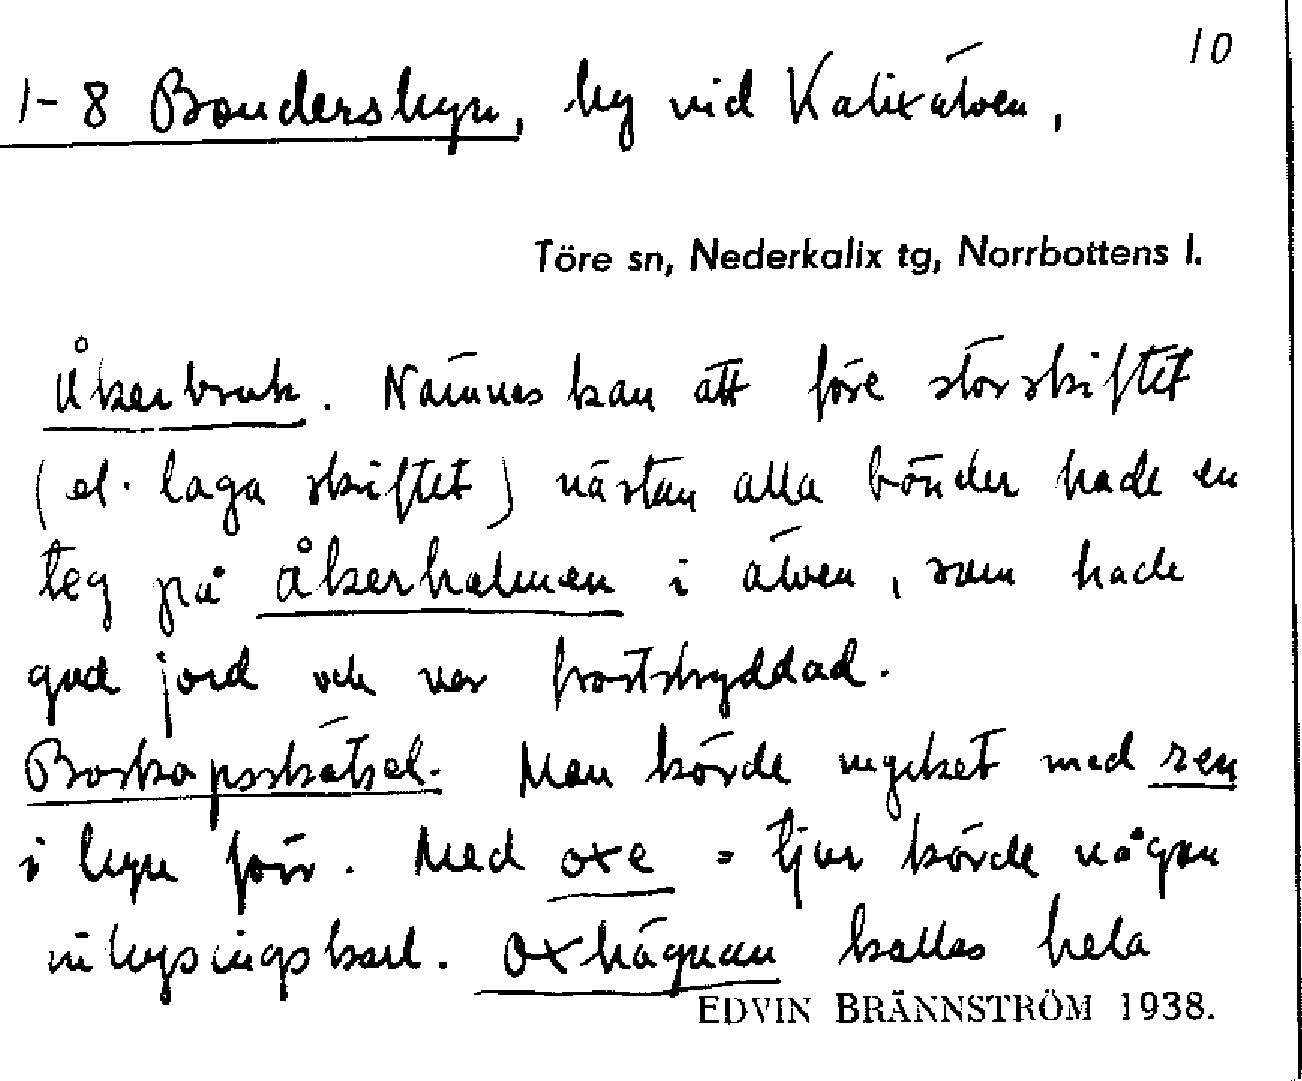 10
1-8 Bondersbyn, by vid Kalixälven,
Töre sn, Nederkalix tg, Norrbottens l.
Åkerbruk. Nämnes kan att före storskiftet
(el. laga skiftet) nästan alla bönder hade en
teg på Åkerholmen i älven, som hade
god jord och var frostskyddad.
Boskapsskötsel. Man körde mycket med ren
i byn förr. Med oxe = tjur körde någon
nybyggingskarl. Oxhägnan kallas hela
EDVIN BRÄNNSTRÖM 1938.